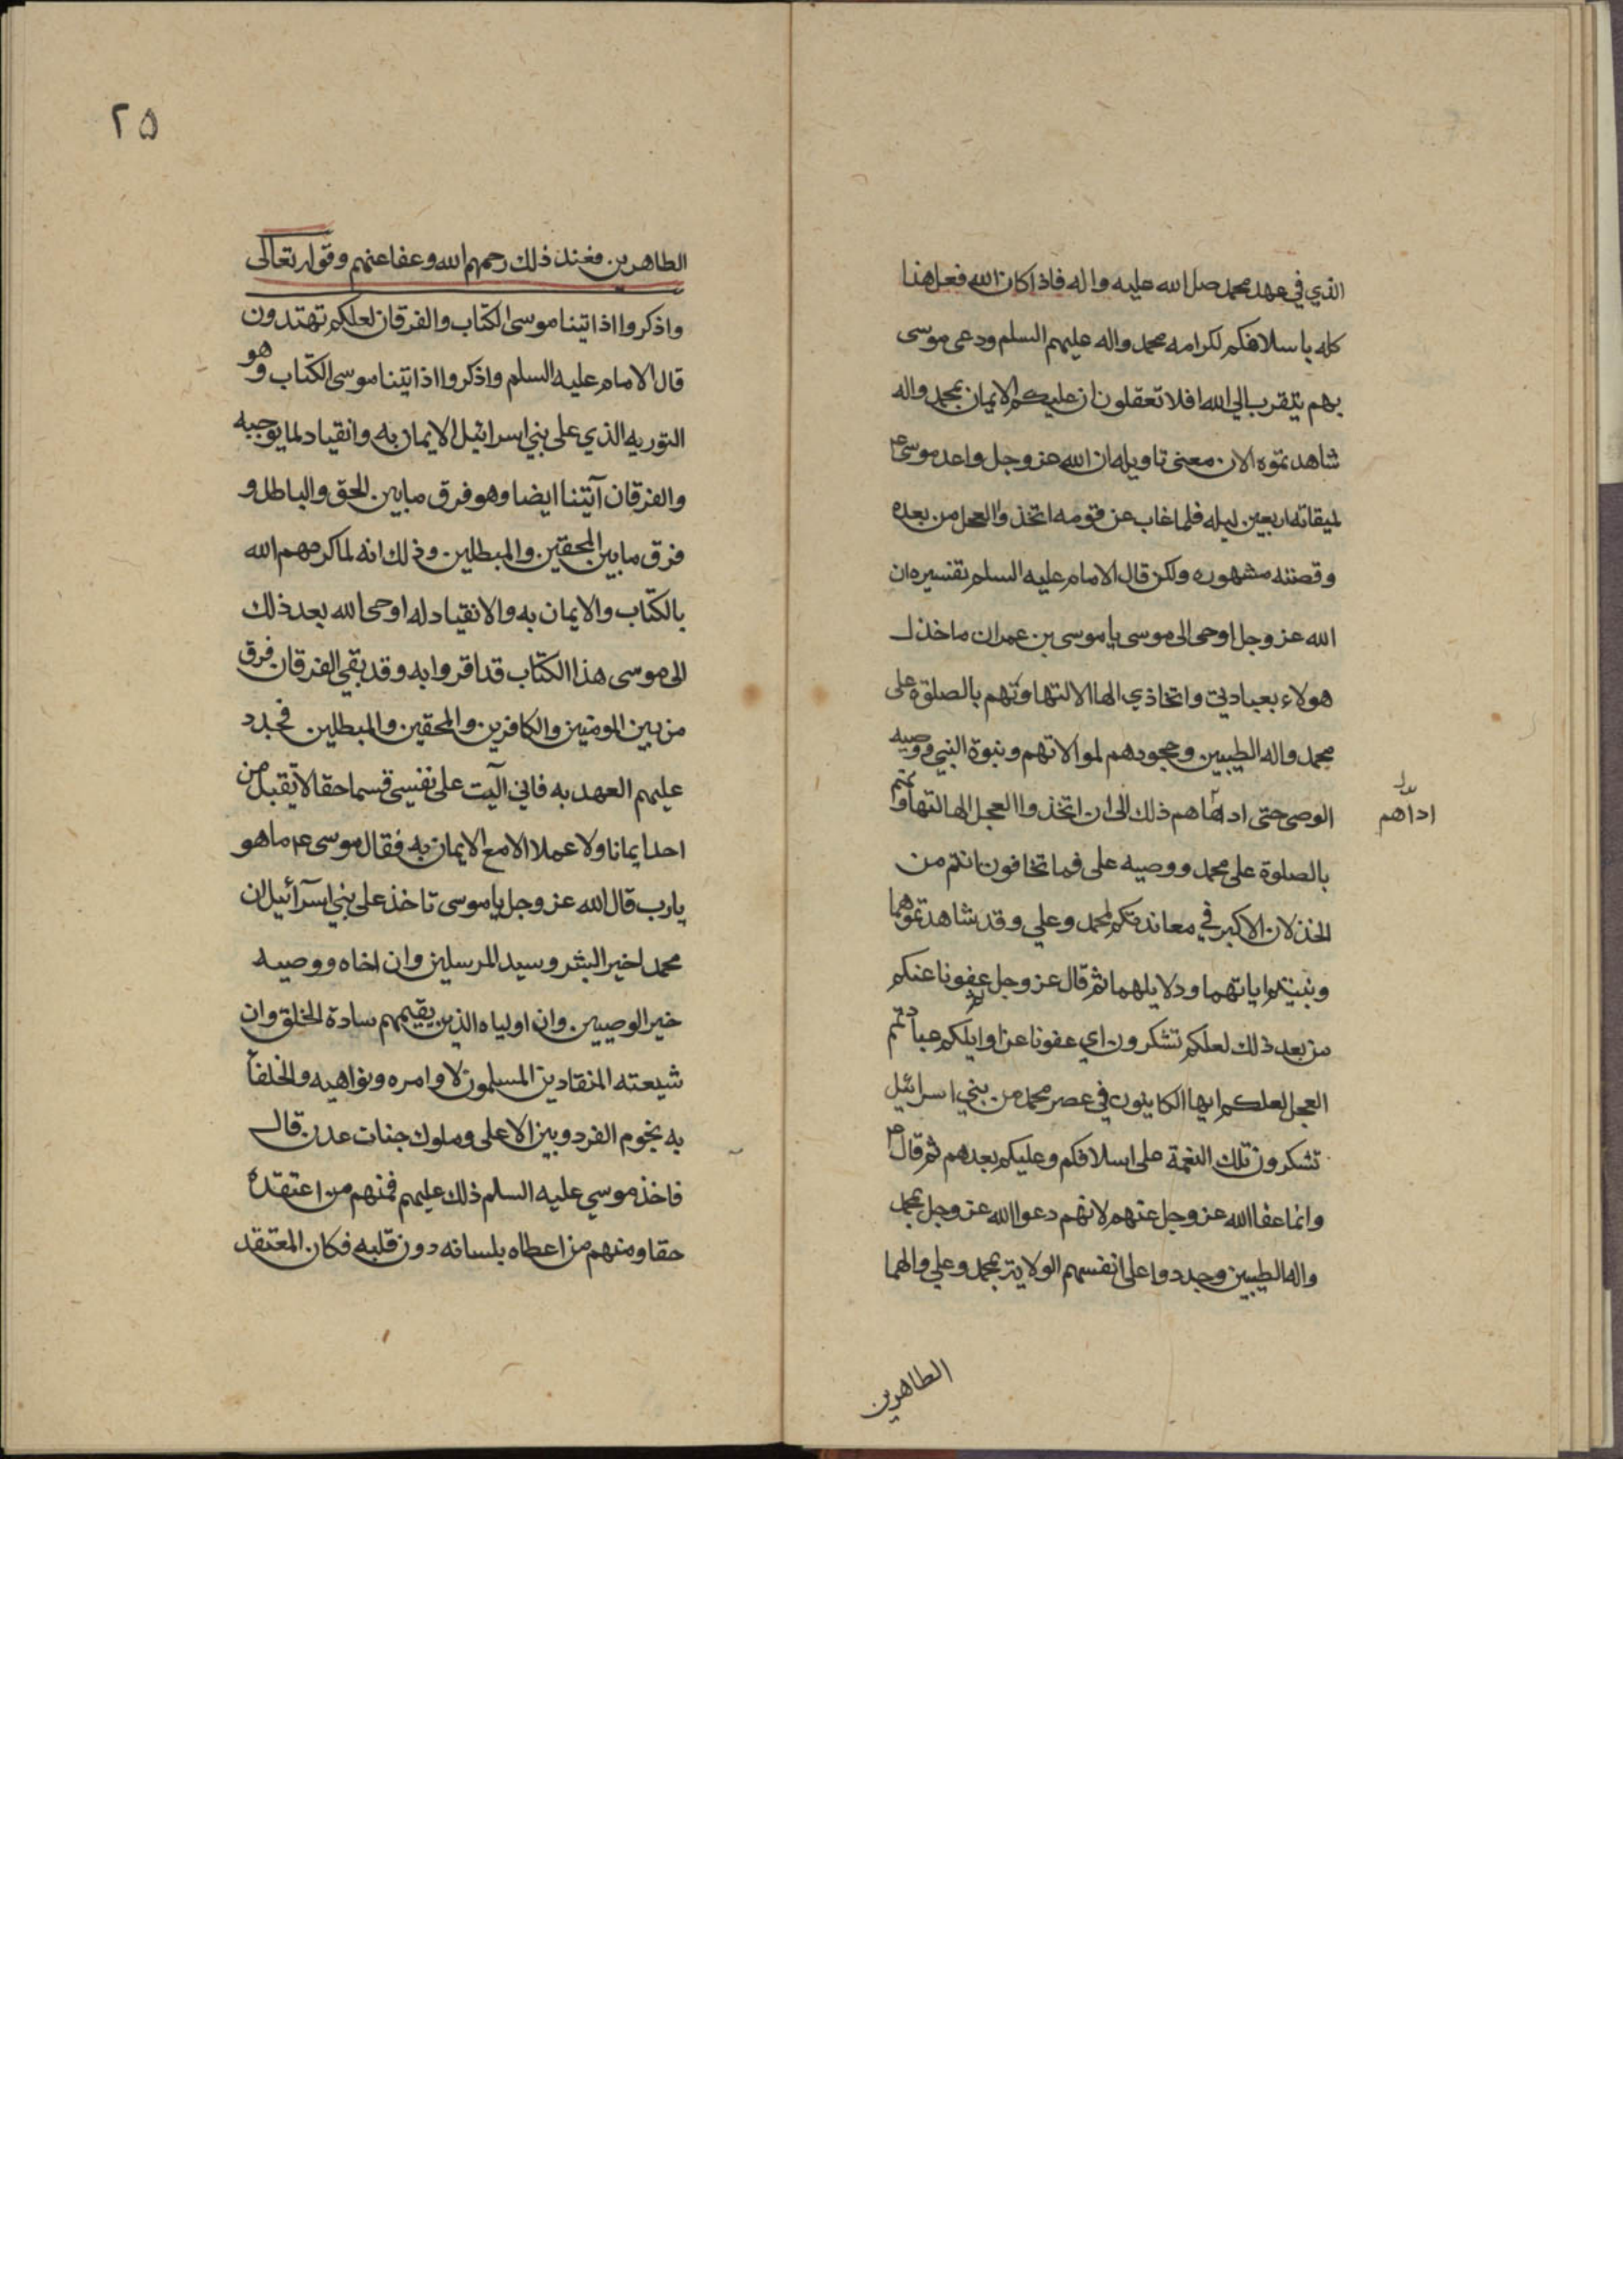 الذي في عهد محمد صل الله عليه واله فاذا كان الله فعل هذا
كله باسلافكم لكرامه محمد واله عليهم السلم ودعى موسى
بهم يتقرب الي الله افلا تعقلون ان عليكم الايمان بمحمد واله
شاهدتموه الان معنى تاويله ان الله عز وجل واعد موسى ع
لميقاته اربعين ليله فلما غاب عن قومه اتخذوا العجل من بعده
وقصته مشهوره ولكن قال الامام عليه السلم تفسيره ان
الله عز وجل اوحى الى موسى يا موسى بن عمران ما خذل
هولاء بعبادتي واتخاذي الها الا لتهاونهم بالصلوة على
محمد واله الطيبين وجحودهم لموالاتهم ونبوة النبي ووصيه
الوصي حتى اداهم ذلك الى ان اتخذوا العجل الها لتهاونتم
بدل
اداهم
بالصلوة على محمد ووصيه على فما تخافون انتم من
الخذلان الاكبر في معاندتكم لمحمد وعلي وقد شاهدتموهما
وتبينتم اياتهما ودلايلهما ثم قال عز وجل عفونا عنكم
من بعد ذلك لعلكم تشكرون اي عفونا عن اوايلكم عبادتهم
العجل لعلكم ايها الكاينون في عصر محمد من بني اسرائيل
تشكرون تلك النعمة على اسلافكم وعليكم بعدهم ثم قال ع
وانما عفا الله عز وجل عنهم لانهم دعوا الله عز وجل بمحمد
واله الطيبين وجددوا على انفسهم الولاية بمحمد وعلي والهما
الطاهرين
٢٥
الطاهرين فعند ذلك رحمهم الله وعفا عنهم وقوله تعالى
واذكروا اذ اتينا موسى الكتاب والفرقان لعلكم تهتدون
قال الامام عليه السلم واذكروا اذ اتينا موسى الكتاب وهو
التوريه الذي على بني اسرائيل الايمان به وانقياد لما يوجبه
والفرقان آتينا ايضا وهو فرق ما بين الحق والباطل و
فرق ما بين المحقين والمبطلين وذلك انه لما كرمهم الله
بالكتاب والايمان به والانقياد له اوحى الله بعد ذلك
الى موسى هذا الكتاب قد اقروا به وقد بقي الفرقان فرق
من بين المومنين والكافرين والمحقين والمبطلين فجدد
عليهم العهد به فاني آليت على نفسي قسما حقا لا تقبل من
احد ايمانا ولا عملا الا مع الايمان به فقال موسى ع ما هو
يارب قال الله عز وجل يا موسى تاخذ على بني اسرآئيل ان
محمد اخير البشر وسيد المرسلين وان اخاه ووصيه
خير الوصيين وان اولياه الذين يقيمهم سادة الخلق وان
شيعته المنقادين المسلمون لاوامره ونواهيه والخلفا
به نجوم الفردوبين الاعلى وملوك جنات عدن قال
فاخذ موسي عليه السلم ذلك عليهم فمنهم من اعتقده
حقا ومنهم من اعطاه بلسانه دون قلبه فكان المعتقد